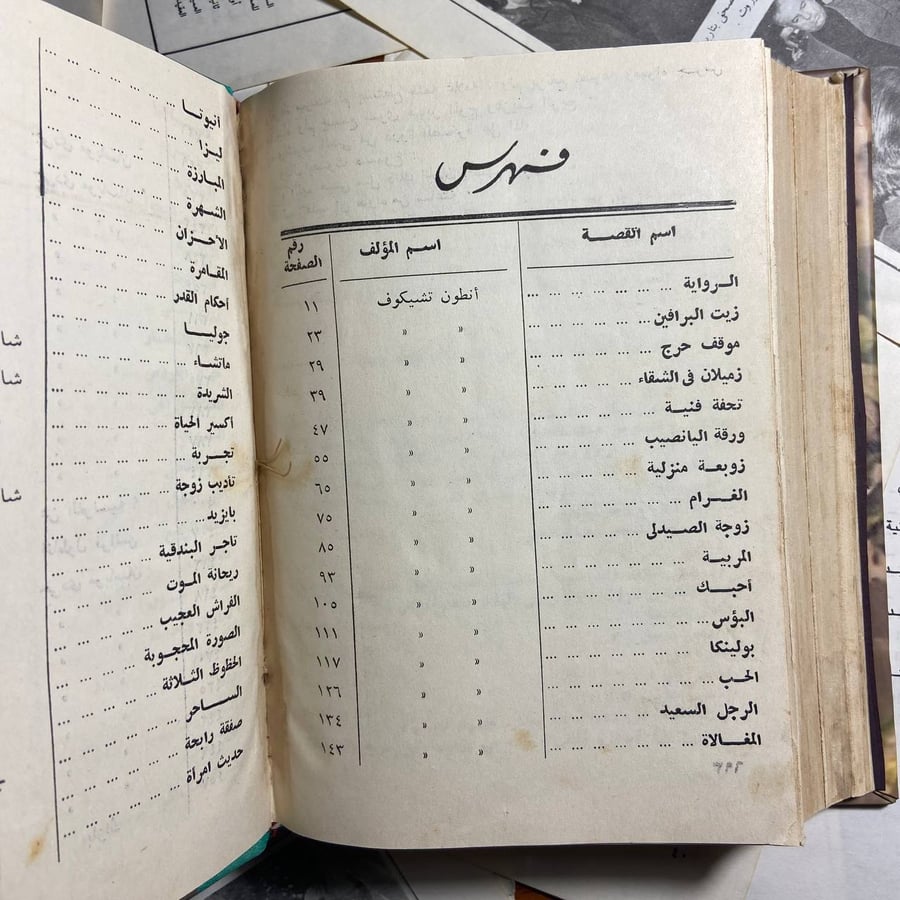 فهرس
اسم القصة اسم المؤلف رقم الصفحة
الرواية ... ... ... ... ... ... أنطون تشيكوف ١١
زيت البرافين ... ... ... ... ... » » ٢٣
موقف حرج ... ... ... ... ... » » ٢٩
زميلان فى الشقاء ... ... ... ... » » ٣٩
تحفة فنية ... ... ... ... ... » » ٤٧
ورقة اليانصيب ... ... ... ... » » ٥٥
زوبعة منزلية ... ... ... ... ... » » ٦٥
الغرام ... ... ... ... ... ... » » ٧٥
زوجة الصيدلى ... ... ... ... ... » » ٨٥
المربية ... ... ... ... ... ... » » ٩٣
أحبك ... ... ... ... ... ... » » ١٠٥
البؤس ... ... ... ... ... ... » » ١١١
بولينكا ... ... ... ... ... ... » » ١١٧
الحب ... ... ... ... ... ... » » ١٢٦
الرجل السعيد ... ... ... ... ... » » ١٣٤
المغالاة ... ... ... ... ... ... » » ١٤٣
أنيوتا ... ... ...
ليزا ... ... ... ...
المبارزة ... ... ... ...
الشهرة ... ... ... ...
الأحزان ... ... ... ...
المقامرة ... ... ... ...
أحكام القدر ... ... ... ...
جوليا ... ... ... ... ...
ماتشاء ... ... ... ... ...
الشريدة ... ... ... ... ...
أكسير الحياة ... ... ... ...
تجربة ... ... ... ... ...
تأديب زوجة ... ... ... ...
بايزيد ... ... ... ...
تاجر البندقية ... ... ... ...
ريحانة الموت ... ... ... ...
الفراش العجيب ... ... ... ...
الصورة المحجوبة ... ... ... ...
الحظوظ الثلاثة ... ... ... ...
الساحر ... ... ... ... ...
صفقة رابحة ... ... ... ...
حديث امرأة ... ... ... ...